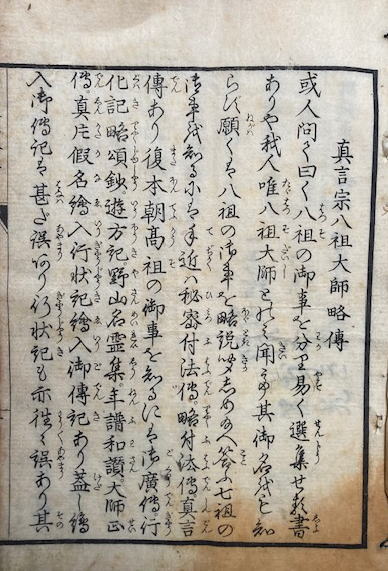 真言宗八祖大師略傳
或人問て曰く八祖の御事を分り易く選集せる書
ありや我人唯八大師とのみ聞て其御名だも知
らず願くは八祖の御事を略説しめたまへ答ふ七祖の
御事を知るには手近は秘密付法傳略付法傳真言
傳あり復本朝高祖の御事を知るには御廣傳行
化記略頌鈔遊方記野山名霊集年譜和讃大師正
傳真片假名繪入行状記繪入御傳記あり蓋し繪
入御傳記は甚だ誤あり行状記も亦往々誤あり其